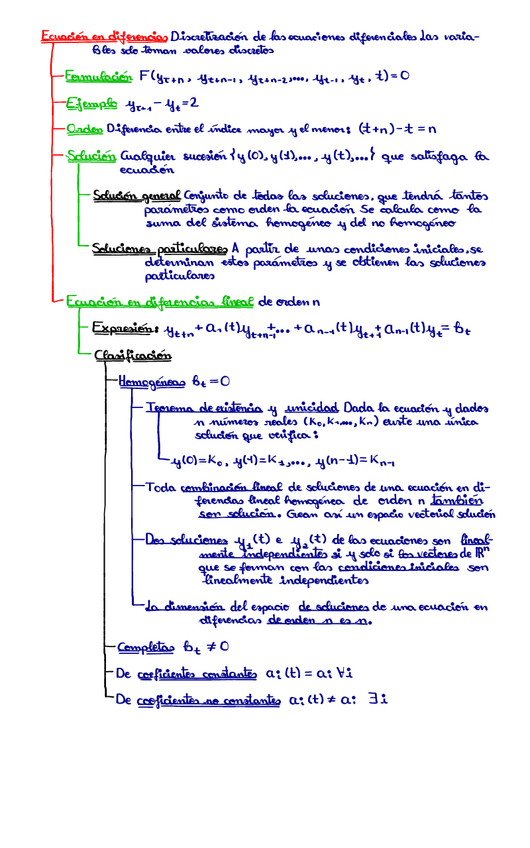 Ecuación en diferencias Discretización de las ecuaciones diferenciales Las varia-
bles solo toman valores discretos
Formulación F(y_{t+n}, y_{t+n-1}, y_{t+n-2}, ..., y_{t-1}, y_t, t) = 0
Ejemplo y_{t+1} - y_t = 2
Orden Diferencia entre el índice mayor y el menor: (t+n) - t = n
Solución Cualquier sucesión {y(0), y(1), ..., y(t), ...} que satisfaga la
ecuación
Solución general Conjunto de todas las soluciones, que tendrá tantos
parámetros como orden la ecuación Se calcula como la
suma del sistema homogéneo y del no homogéneo
Soluciones particulares A partir de unas condiciones iniciales, se
determinan estos parámetros y se obtienen las soluciones
particulares
Ecuación en diferencias lineal de orden n
Expresión: y_{t+n} + a_1(t) y_{t+n-1} + ... + a_{n-1}(t) y_{t+1} + a_{n-1}(t) y_t = b_t
Clasificación
Homogéneas b_t = 0
Teorema de existencia y unicidad Dada la ecuación y dados
n números reales (K_0, K_1, ..., K_n) existe una única
solución que verifica:
y(0) = K_0, y(1) = K_1, ..., y(n-1) = K_{n-1}
Toda combinación lineal de soluciones de una ecuación en di-
ferencias lineal homogénea de orden n también
son solución. Crean así un espacio vectorial solución
Dos soluciones y_1(t) e y_2(t) de las ecuaciones son lineal-
mente independientes si y solo si los vectores de ℝⁿ
que se forman con las condiciones iniciales son
linealmente independientes
La dimensión del espacio de soluciones de una ecuación en
diferencias de orden n es n.
Completas b_t ≠ 0
De coeficientes constantes a_i(t) = a_i ∀i
De coeficientes no constantes a_i(t) ≠ a_i ∃i